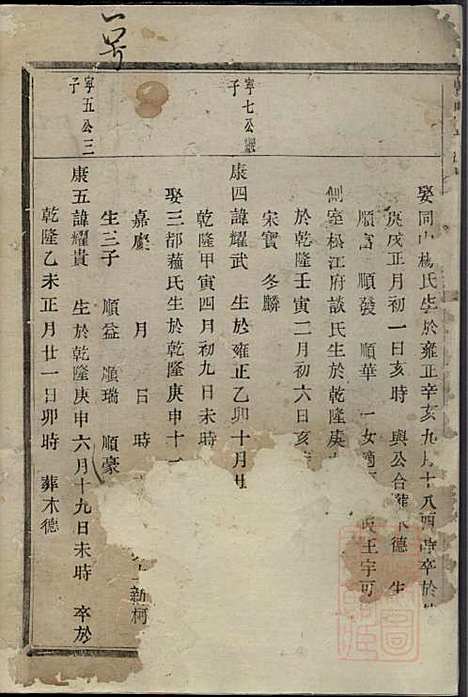 娶同 楊氏生於雍正辛亥九月十八酉時卒於
庚戌正月初一日亥時 與公合葬木德 生
順富 順發 順華 一女適 王宇可
側室松江府談氏生於乾隆庚
於乾隆壬寅二月初六日亥
宋寶 冬麟
寧七公 子
康四諱耀武 生於雍正乙卯十月廿
乾隆甲寅四月初九日未時
娶三都蘓氏生於乾隆庚申十一
嘉慶 月 日 時
生三子 順益 順瑞 順豪
新柯
寧五公三子
康五諱耀貴 生於乾隆庚申六月十九日未時 卒於
乾隆乙未正月廿一日卯時 葬木德